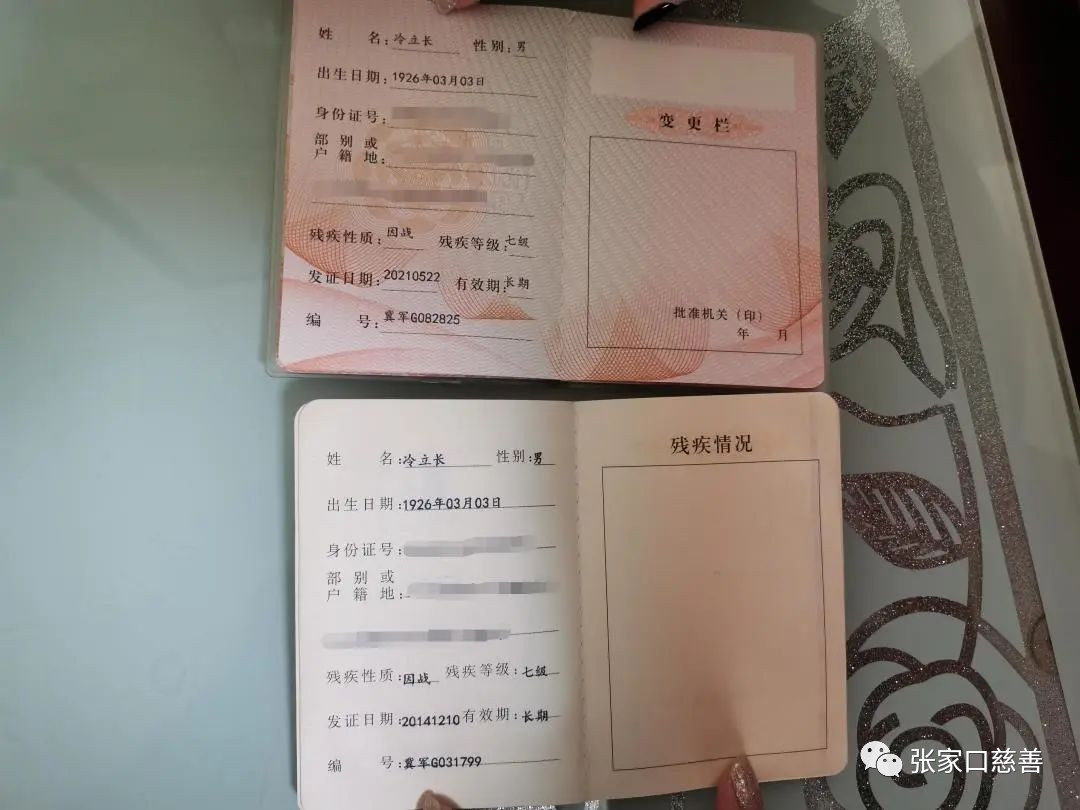 姓 名:冷立长 性别:男
出生日期:1926年03月03日
身份证号:
部别或
户籍地:
残疾性质:因战 残疾等级:七级
发证日期:20210522 有效期:长期
编 号:冀军G082825
变更栏
批准机关（印）
年 月
姓 名:冷立长 性别:男
出生日期:1926年03月03日
身份证号:
部别或
户籍地:
残疾性质:因战 残疾等级:七级
发证日期:20141210 有效期:长期
编 号:冀军G031799
残疾情况
张家口慈善